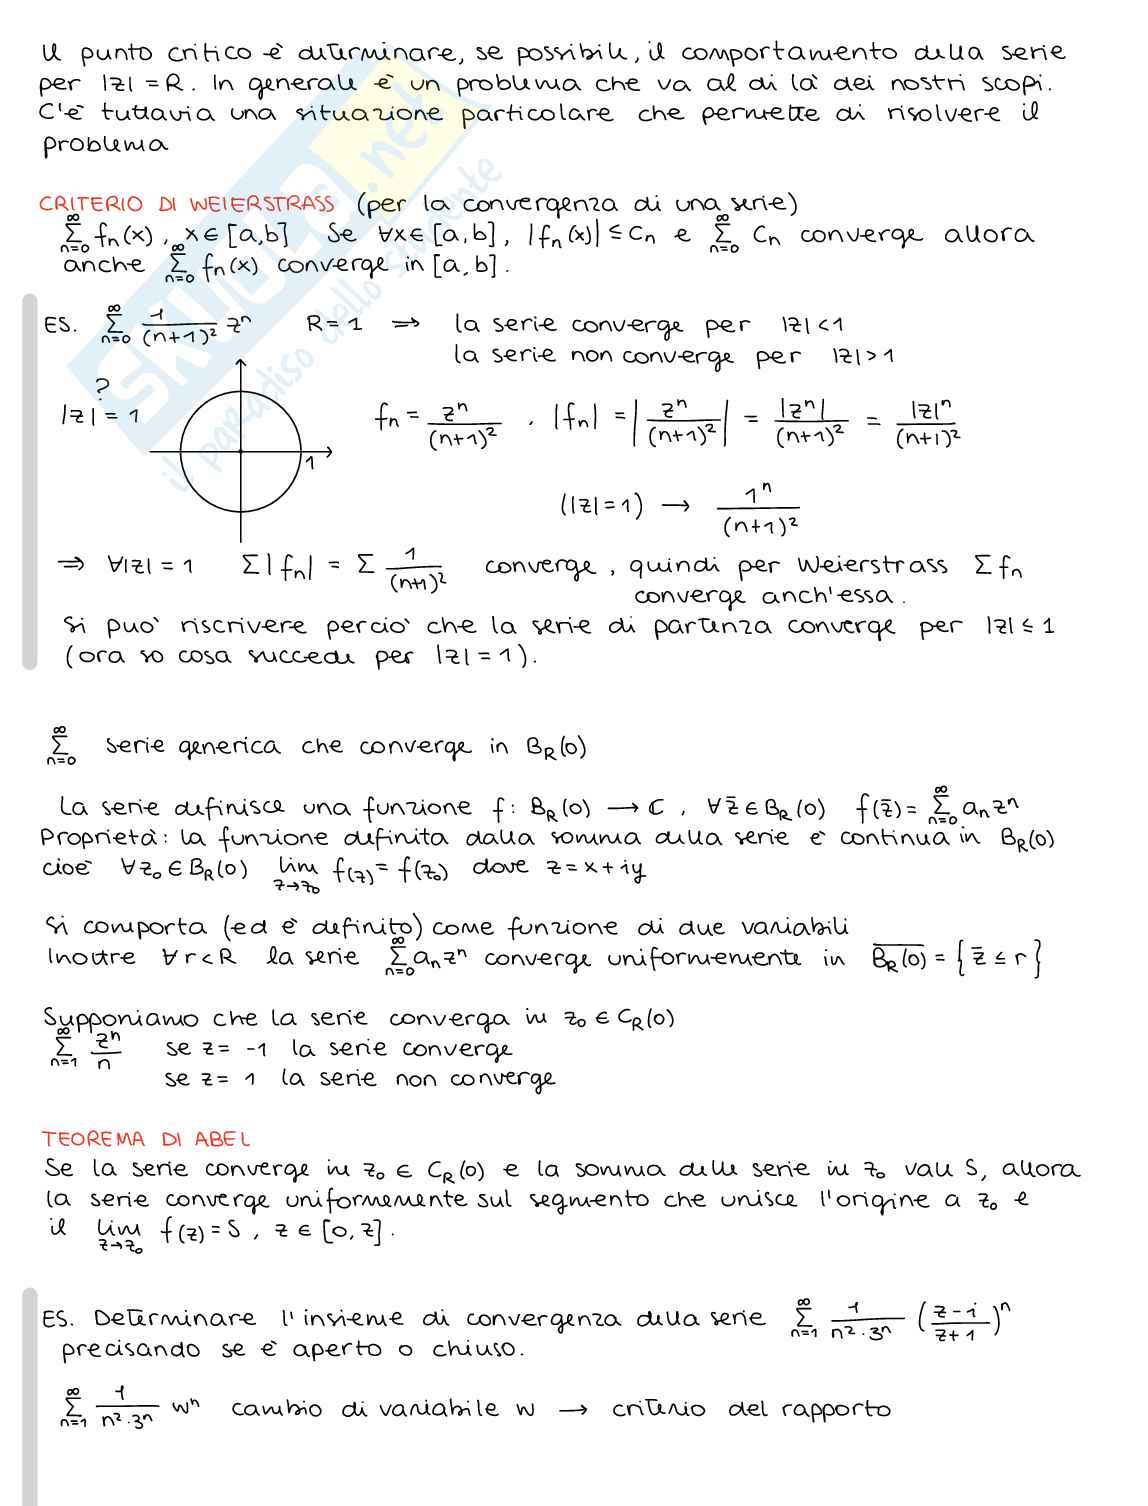 Il punto critico è determinare, se possibile, il comportamento della serie
per |z| = R. In generale è un problema che va al di là dei nostri scopi.
C'è tuttavia una situazione particolare che permette di risolvere il
problema
CRITERIO DI WEIERSTRASS (per la convergenza di una serie)
∑_{n=0}^{∞} fn(x), x ∈ [a,b] Se ∀x ∈ [a,b], |fn(x)| ≤ Cn e ∑_{n=0}^{∞} Cn converge allora
anche ∑_{n=0}^{∞} fn(x) converge in [a,b].
ES. ∑_{n=0}^{∞} 1/(n+1)² zⁿ R = 1 ⇒ la serie converge per |z| < 1
la serie non converge per |z| > 1
?
|z| = 1 fn = zⁿ/(n+1)² . |fn| = |zⁿ/(n+1)²| = |zⁿ|/(n+1)² = |z|ⁿ/(n+1)²
1
(|z| = 1) → 1ⁿ/(n+1)²
⇒ ∀|z| = 1 ∑|fn| = ∑ 1/(n+1)² converge, quindi per Weierstrass ∑fn
converge anch'essa.
Si può riscrivere perciò che la serie di partenza converge per |z| ≤ 1
(ora so cosa succede per |z| = 1).
∑_{n=0}^{∞} serie generica che converge in B_R(0)
La serie definisce una funzione f: B_R(0) → ℂ, ∀z̄ ∈ B_R(0) f(z̄) = ∑_{n=0}^{∞} aₙzⁿ
Proprietà: la funzione definita dalla somma della serie è continua in B_R(0)
cioè ∀z₀ ∈ B_R(0) lim_{z→z₀} f(z) = f(z₀) dove z = x + iy
Si comporta (ed è definito) come funzione di due variabili
Inoltre ∀r < R la serie ∑_{n=0}^{∞} aₙzⁿ converge uniformemente in \overline{B_R(0)} = {z̄ ≤ r}
Supponiamo che la serie converga in z₀ ∈ C_R(0)
∑_{n=1}^{∞} zⁿ/n se z = -1 la serie converge
se z = 1 la serie non converge
TEOREMA DI ABEL
Se la serie converge in z₀ ∈ C_R(0) e la somma delle serie in z₀ vale S, allora
la serie converge uniformemente sul segmento che unisce l'origine a z₀ e
il lim_{z→z₀} f(z) = S, z ∈ [0,z].
ES. Determinare l'insieme di convergenza della serie ∑_{n=1}^{∞} 1/(n²·3ⁿ) ((z-i)/(z+1))ⁿ
precisando se è aperto o chiuso.
∑_{n=1}^{∞} 1/(n²·3ⁿ) wⁿ cambio di variabile w → criterio del rapporto
SKUOLA.net
il paradiso dello studente